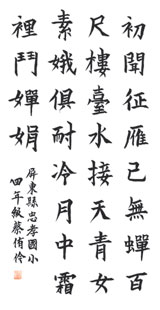 初聞征雁已無蟬百
尺樓臺水接天青女
素娥俱耐冷月中霜
裡鬥嬋娟
屏東縣忠孝國小
四年級蔡侑伶